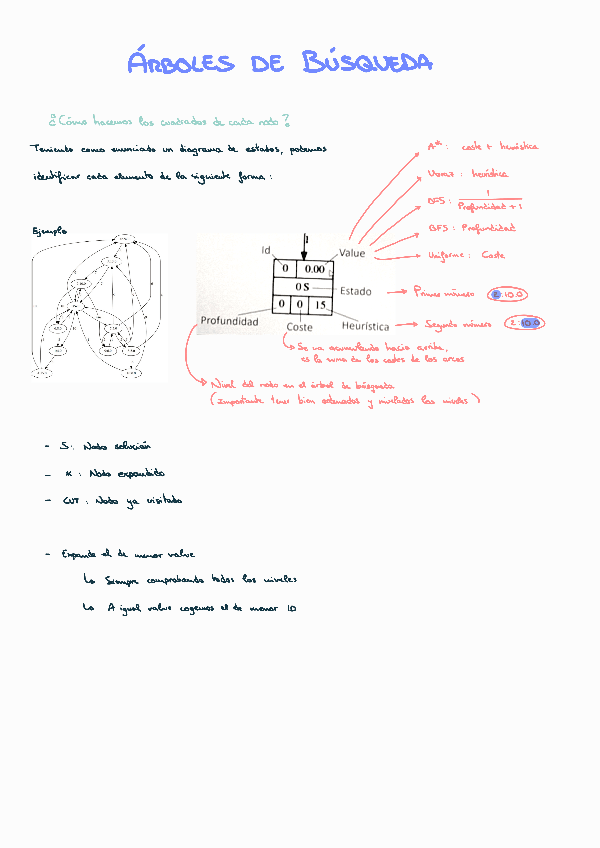 ÁRBOLES DE BÚSQUEDA
¿Cómo hacemos los cuadrados de cada nodo?
Teniendo como enunciado un diagrama de estados, podemos
identificar cada elemento de la siguiente forma:
Ejemplo
A*: coste + heurística
Voraz: heurística
DFS: 1
Profundidad + 1
BFS: Profundidad
Uniforme: Coste
Id
Value
0 0.00
0 S
Estado
0 0 15
Profundidad
Coste
Heurística
Primer número 2:10.0
Segundo número 2:10.0
Se va acumulando hacia arriba,
es la suma de los costes de los arcos
Nivel del nodo en el árbol de búsqueda
(Importante tener bien ordenados y nivelados los niveles)
- S: Nodo solución
- K: Nodo expandido
- CUT: Nodo ya visitado
- Expande el de menor value
Siempre comprobando todos los niveles
A igual value cogemos el de menor ID